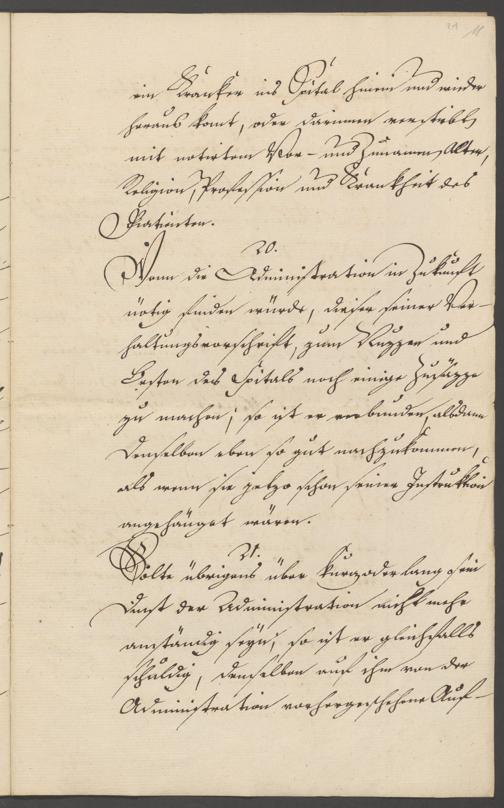 ein Kranker ins Spital hinein und wieder
heraus komt, oder darinnen verstirbt,
mit notirtem Vor- und Zunamen, Alter,
Religion, Profession und Krankheit des
Patienten.
20.
Wenn die Administration in Zukunft
nötig finden würde, dieser seiner Ver-
haltungsvorschrift, zum Nuzzen und
Besten des Spitals noch einige Zusäzze
zu machen; so ist er verbunden, alsdann
denselben eben so gut nachzukommen,
als wenn sie jetzo schon seiner Instruktion
angehänget wären.
21.
Solte übrigens über kurz oder lang sein
Dinst der Administration nicht mehr
anständig seyn, so ist er gleichfalls
schuldig, denselben auf ihm von der
Administration vorhergeschehene Auf-